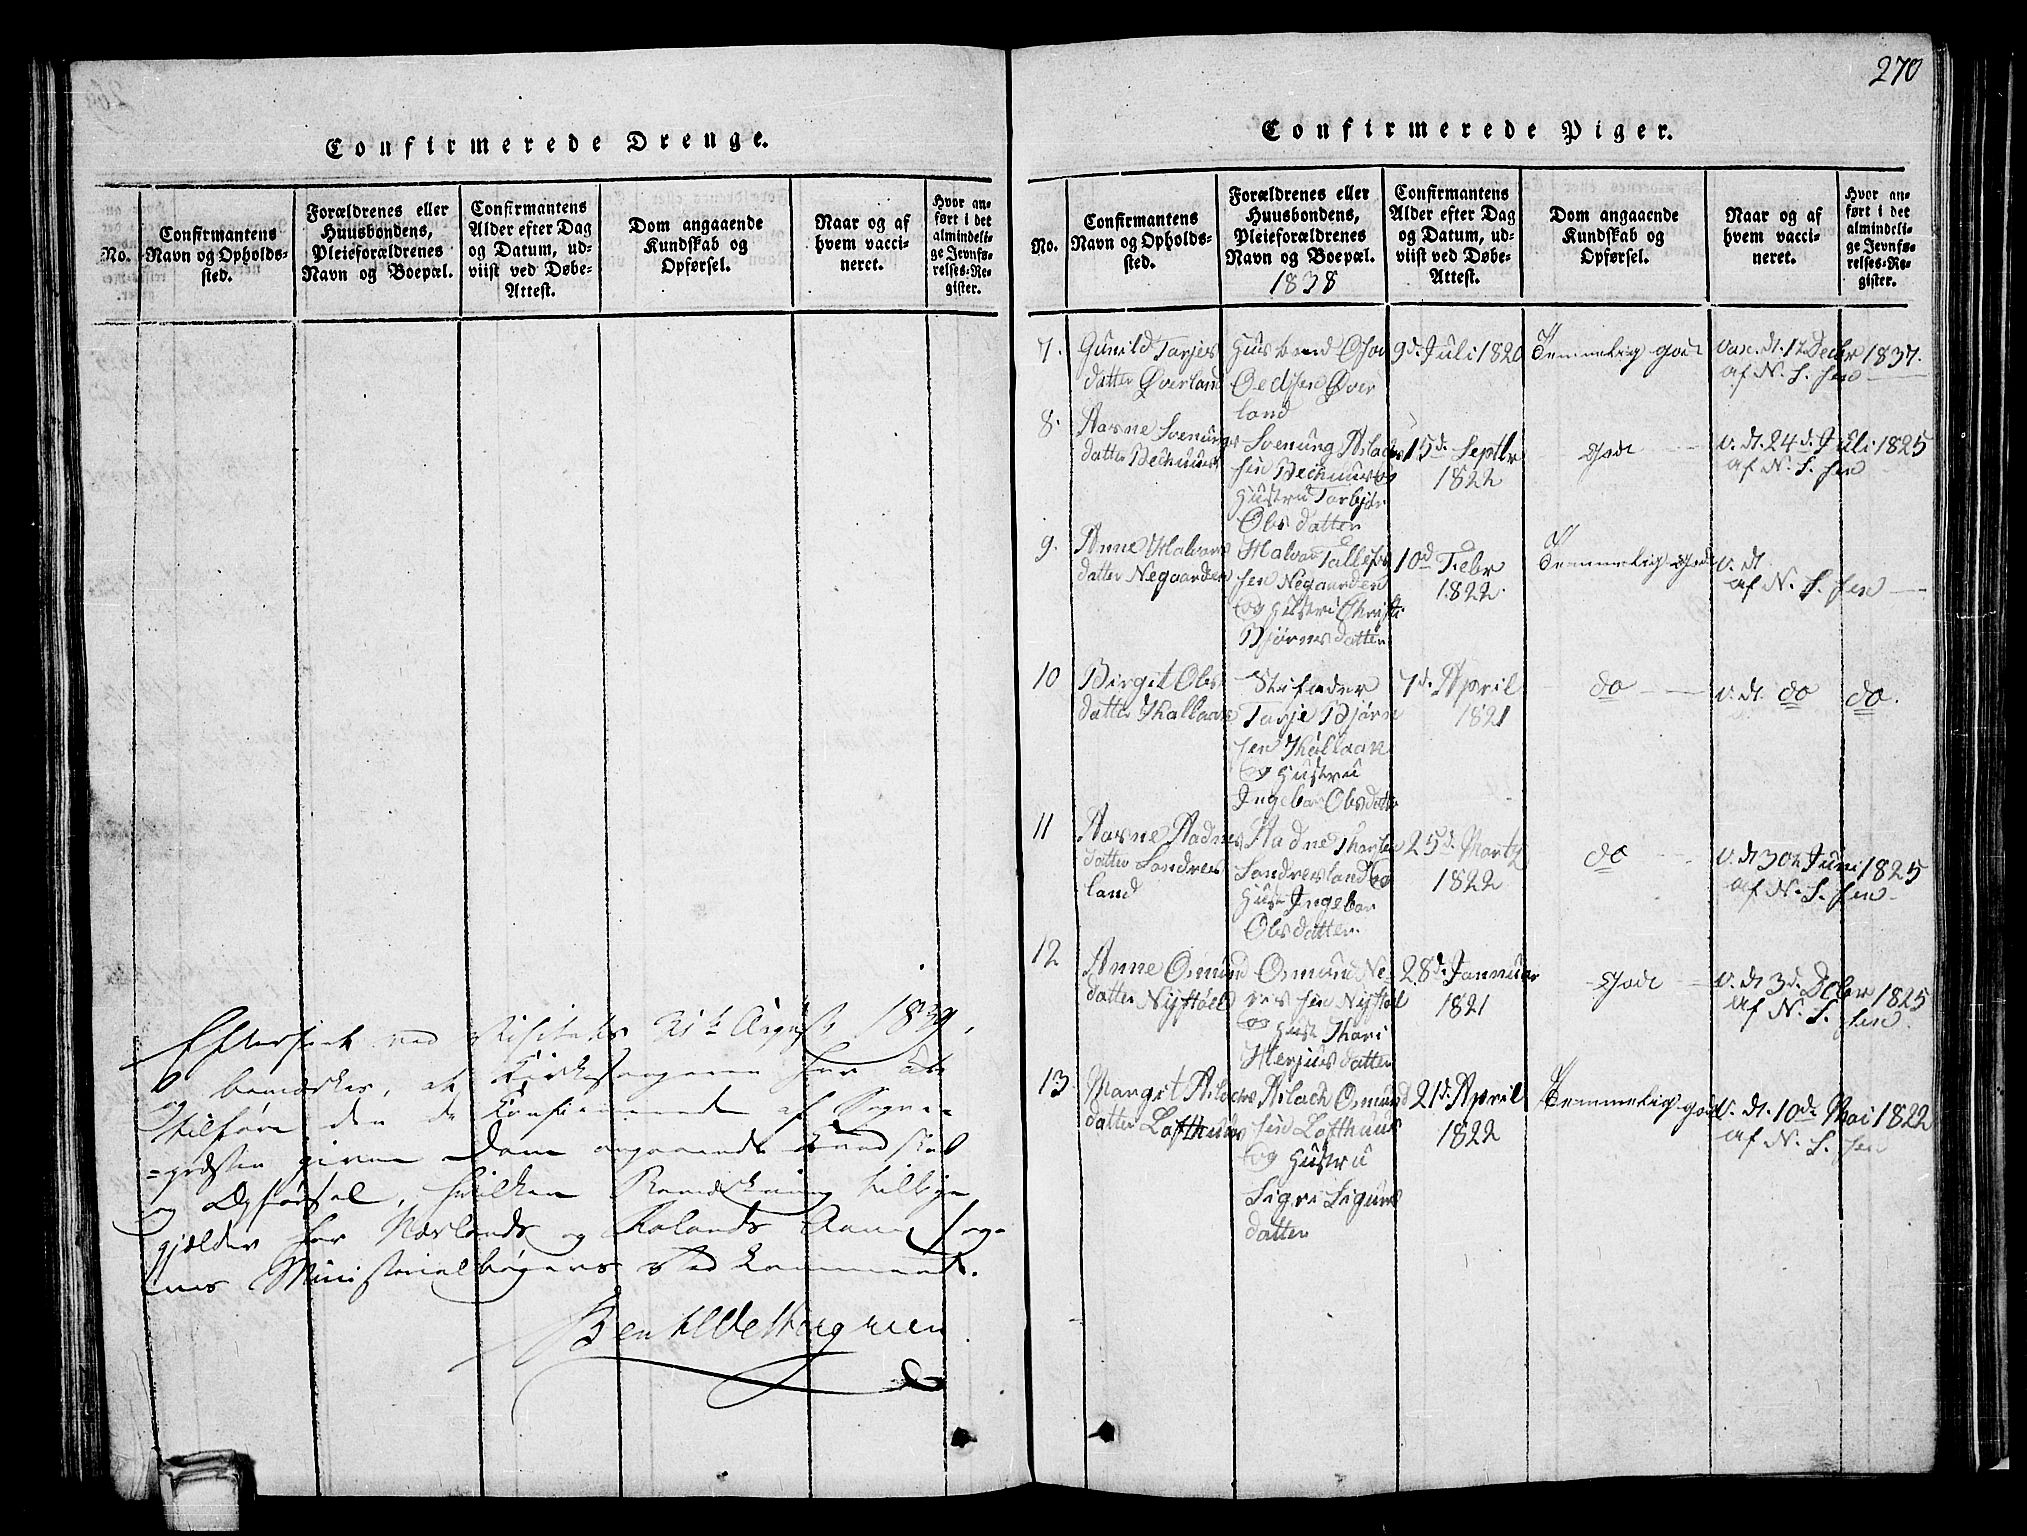 270
Confirmerede Drenge.
No.
Confirmantens
Navn og Opholds-
sted.
Forældrenes eller
Huusbondens,
Pleieforældrenes
Navn og Boepæl.
Confirmantens
Alder efter Dag
og Datum, ud-
viist ved Døbe-
Attest.
Dom angaaende
Kundskab og
Opførsel.
Naar og af
hvem vacci-
neret.
Hvor an-
ført i det
almindeli-
ge Jevnfø-
relses-Re-
gister.
Efterseet ved Visitats 21de August 1839,
og bemærkes, at Kirkesangeren har at
tilføre den de Confirmerede af Sogne-
=præsten givne Dom angaaende Kundskab
og Opførsel, hvilken Bemærkning tillige
gjælder for og Sog-
nes Ministerialbøgers Vedkommende.
Confirmerede Piger.
No.
Confirmantens
Navn og Opholds-
sted.
Forældrenes eller
Huusbondens,
Pleieforældrenes
Navn og Boepæl.
1838
Confirmantens
Alder efter Dag
og Datum, ud-
viist ved Døbe-
Attest.
Dom angaaende
Kundskab og
Opførsel.
Naar og af
hvem vacci-
neret.
Hvor an-
ført i det
almindeli-
ge Jevnfø-
relses-Re-
gister.
7.
Gunild Tarjes
datter Øverland
Husbond
Øver
land
9d. Juli 1820
Temmelig god
vac. dt. 12 Decbr 1837.
af N. S. sen
8.
Aasne Svenungs
datter Bechuus
Svenung Aslachs
sen Bechuus og
Hustru Torbjør
Olsdatter
15d. Septbr
1822
God
v. dt. 24d. Juli 1825
af N. S. sen
9.
Anne Halvors
datter Negaarden
Halvor Tallefs
sen Negaarden
og Hustru Christi
Bjørnsdatter
10d Febr
1822.
Temmelig God
v. dt.
af N. S. sen
10
Birgit Ols
datter
Stifader
Tarje Bjørn
sen
og Hustru
Ingebor Olsdatter
7d. April
1821
do
v. dt. do do.
11
Aasne Aadnes
datter Sondres
land
Aadne
Sondresland og
Hust. Ingebor
Olsdatter
25d. Marty
1822
do
v. dt 30d. Juni 1825
af N. S. sen
12
Anne Osmund
datter Nystøel
Osmund
sen Nystøel
og Hust. Thori
Herjusdatter
28d. Januuar
1821
God
v. dt 3d. Decbr 1825
af N. S. sen
13
Margit Aslachs
datter Lofthuus
Aslach Osmund
sen Lofthuus
og Hustru
Sigri Sigurs
datter
21d. April
1822
Temmelig god
v. dt. 10d. Mai 1822
af N. S. sen